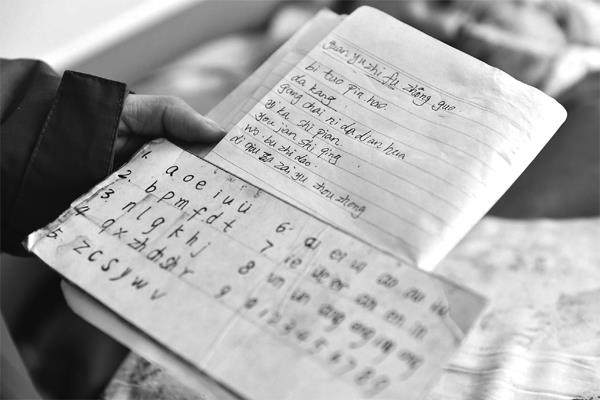 yu zhi fu zhōng guo
bi tuo pin hao
da kang
gang chai ni da dian hua
ka shi pian
you jian shi qing
wo bu zhi dao
di zai yu zhou zhong
1. a o e i u ü
2. b p m f d t
3. n l g k h j
4. q x zh ch sh r
5. z c s y w v
6. ai ei ui ao ou iu
7 ie üe er an en in
8 un ün ang eng ing ong
9 0 1 2 3 4 5 6 7 8 9